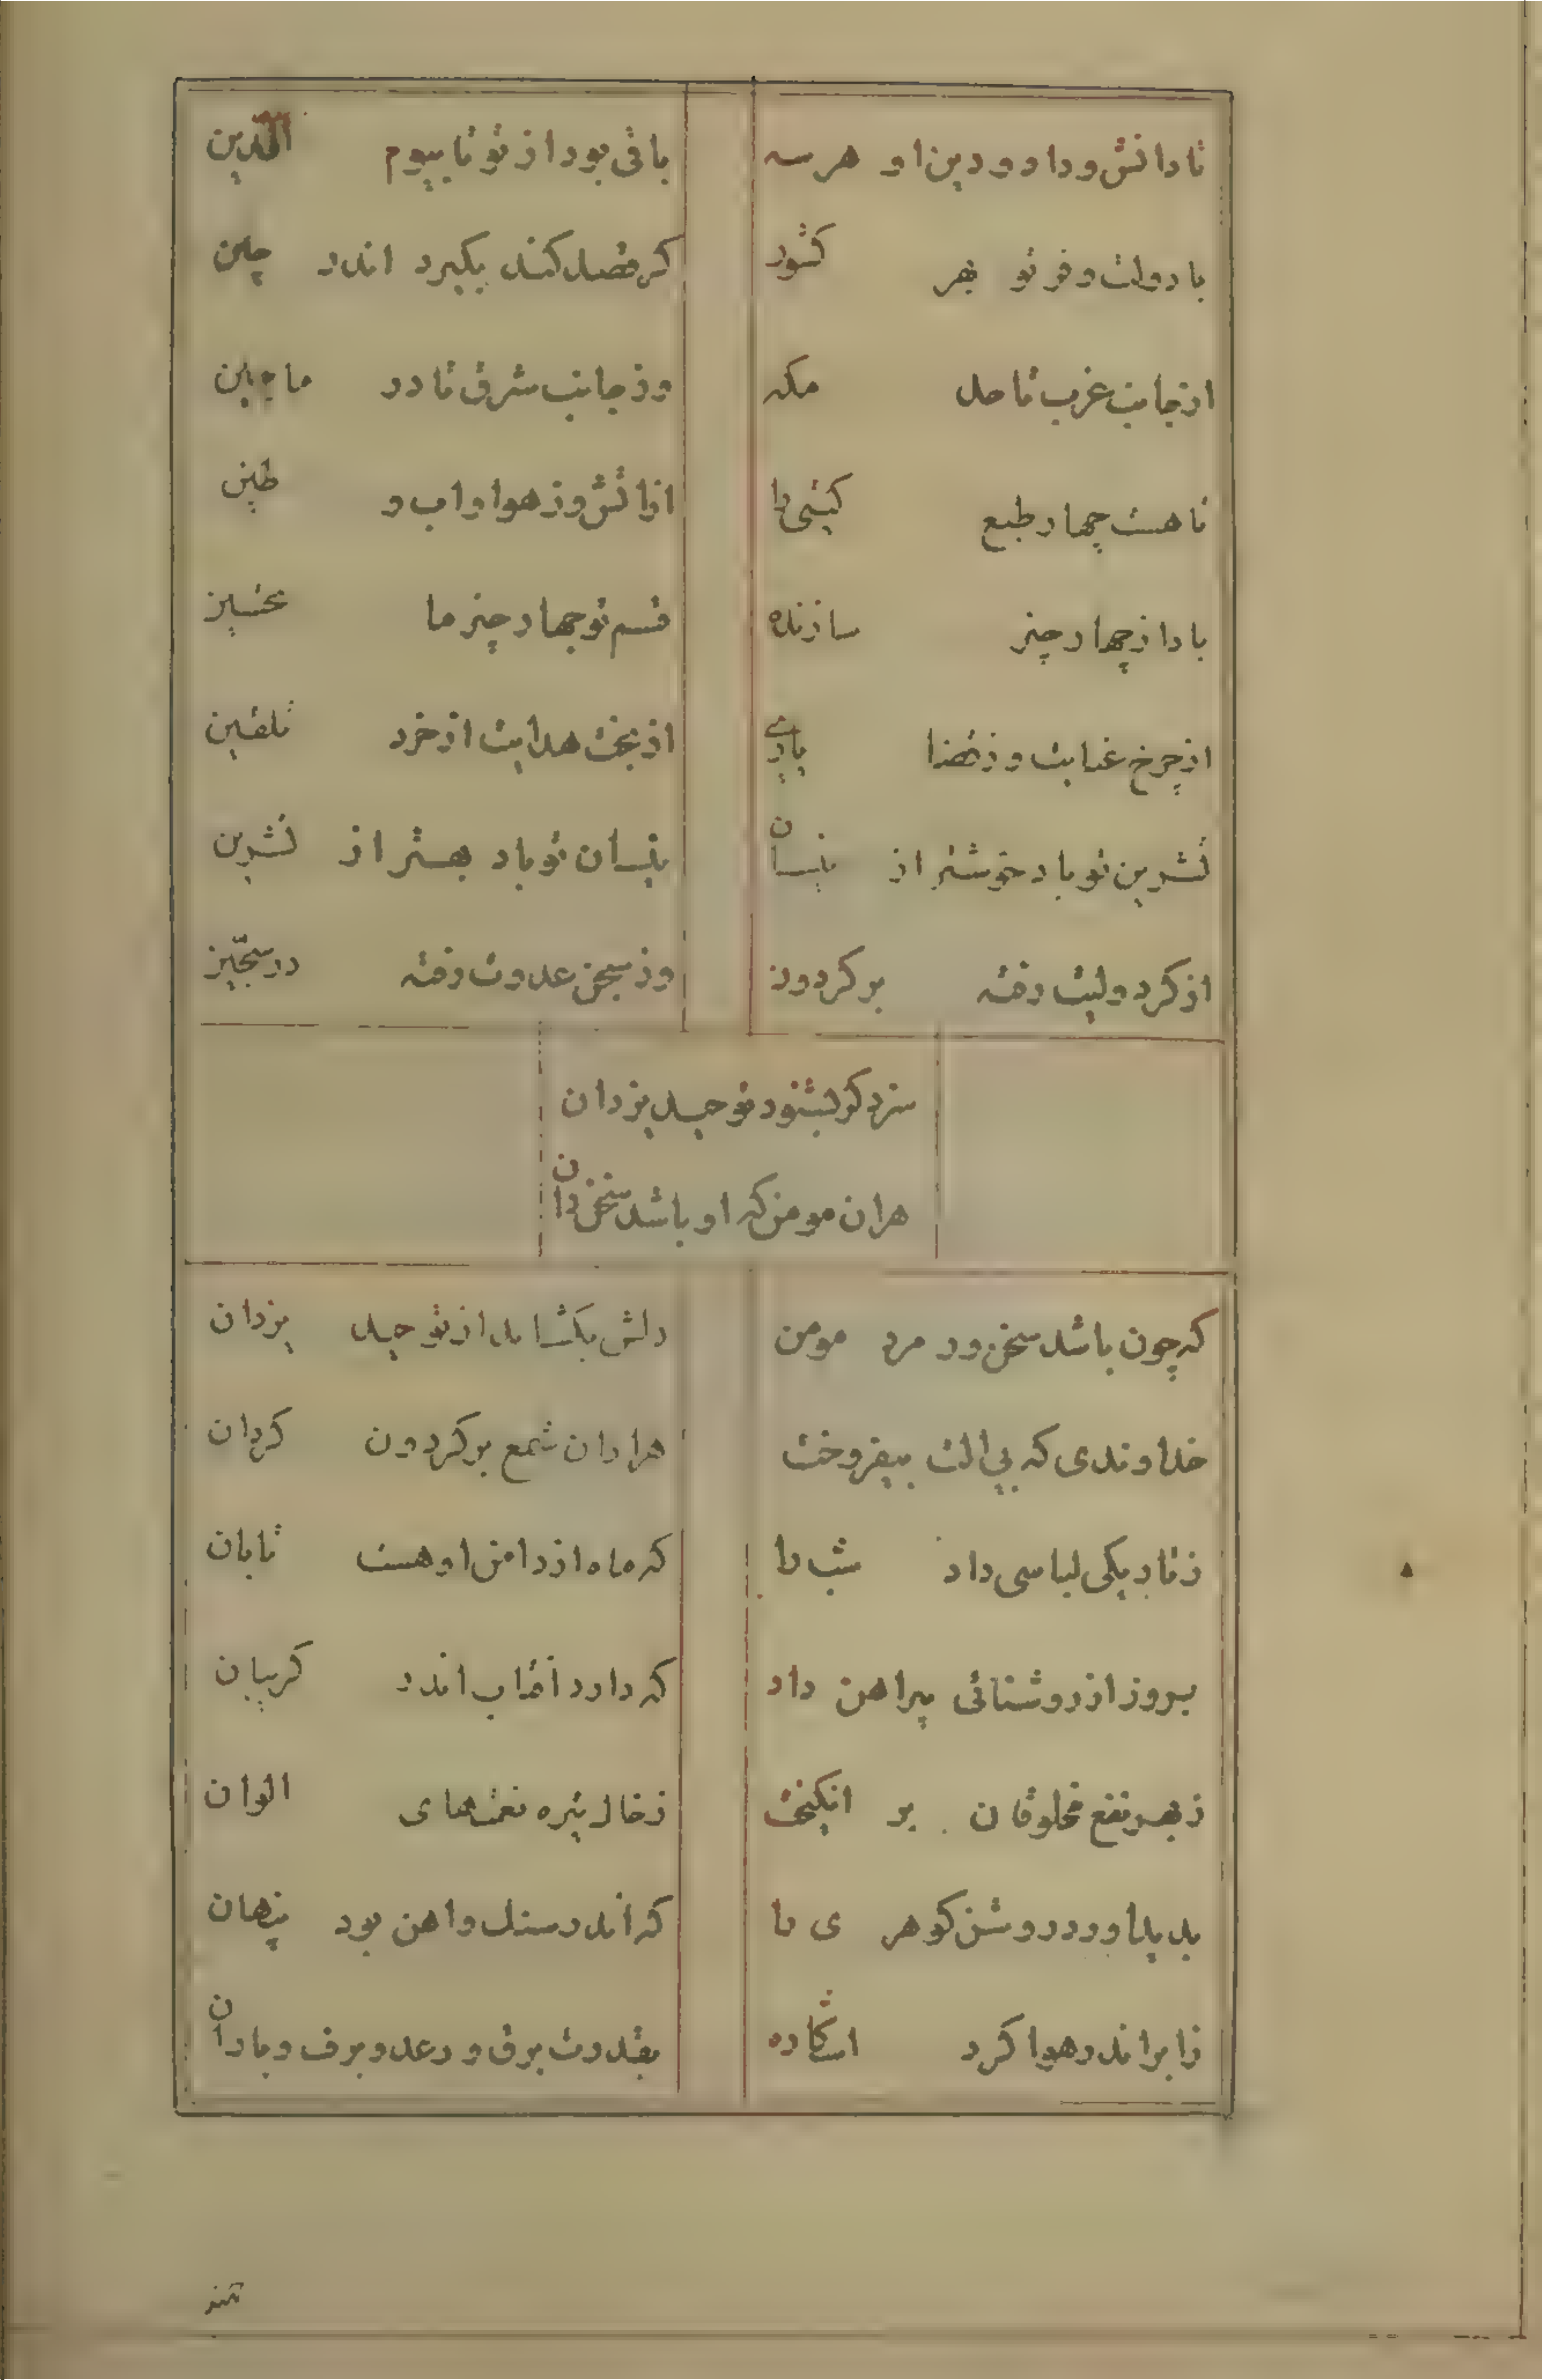 تا دانش و داد و دین او هر سه
باقی بود از تو تا بیوم الدین
با دولت و فر تو بهر کشور
کر قصد کند بکیرد اندر چین
از جانب غرب تا حد مکه
وز جانب شرق تا در ماچین
تا هست چهار طبع کیتی را
از اتش وز هوا و اب و طین
بادا ز چهار چیز سازنده
قسم تو چهار چیز ما
از چرخ عنایت و ز قضا یاری
از بخت هدایت از خرد تلقین
تشرین تو باد خوشتر از نیسان
نیسان تو باد بهتر از تشرین
از کرد ولیت رفته بر کردون
وز سجن عدوت رفته در سجین
سزد کر بشنود توحید یزدان
هران مومن که او باشد سخن دان
که چون باشد سخن ور مرد مومن
دلش بکشاید از توحید یزدان
خداوندی که بی الت بیفروخت
هزاران شمع بر کردون کردان
ز تاریکی لباسی داد شب را
که ماه از دامن او هست تابان
بروز از روشنائی پیراهن داد
که دارد افتاب اندر کریبان
ز بهر نفع مخلوقان بر انکیخت
ز خاک تیره نعمتهای الوان
پدید اورد روشن کوهری را
که اندر سنک و اهن بود پنهان
ز ابر اندر هوا کرد اشکاره
بقدرت برق و رعد و برف و باران